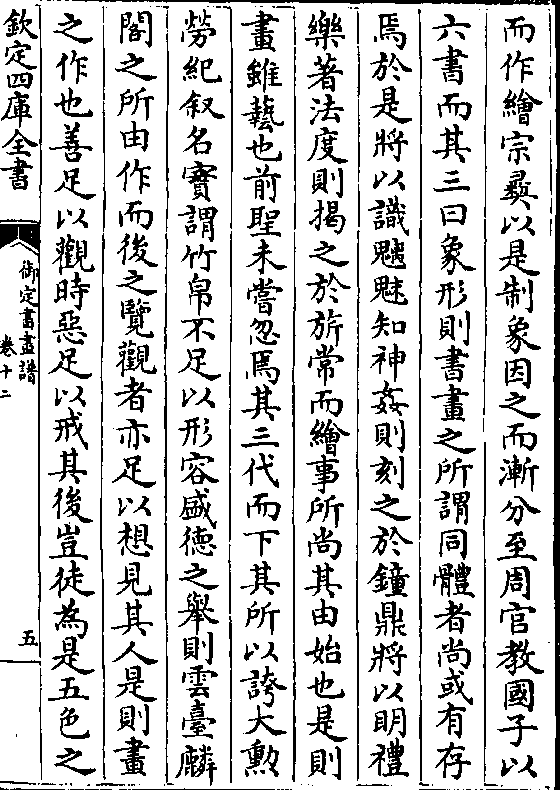 而作繪宗彞以是制象因之而漸分至周官教國子以
六書而其三曰象形則書畫之所謂同體者尚或有存
焉於是將以識魑魅知神姦則刻之於鐘鼎將以明禮
樂著法度則揭之於旂常而繪事所尚其由始也是則
畫雖藝也前聖未嘗忽焉其三代而下其所以誇大勲
勞紀叙名實謂竹帛不足以形容盛德之舉則雲臺麟
閣之所由作而後之覽觀者亦足以想見其人是則畫
之作也善足以觀時惡足以戒其後豈徒為是五色之
欽定四庫全書
御定書畫譜
卷十二
五